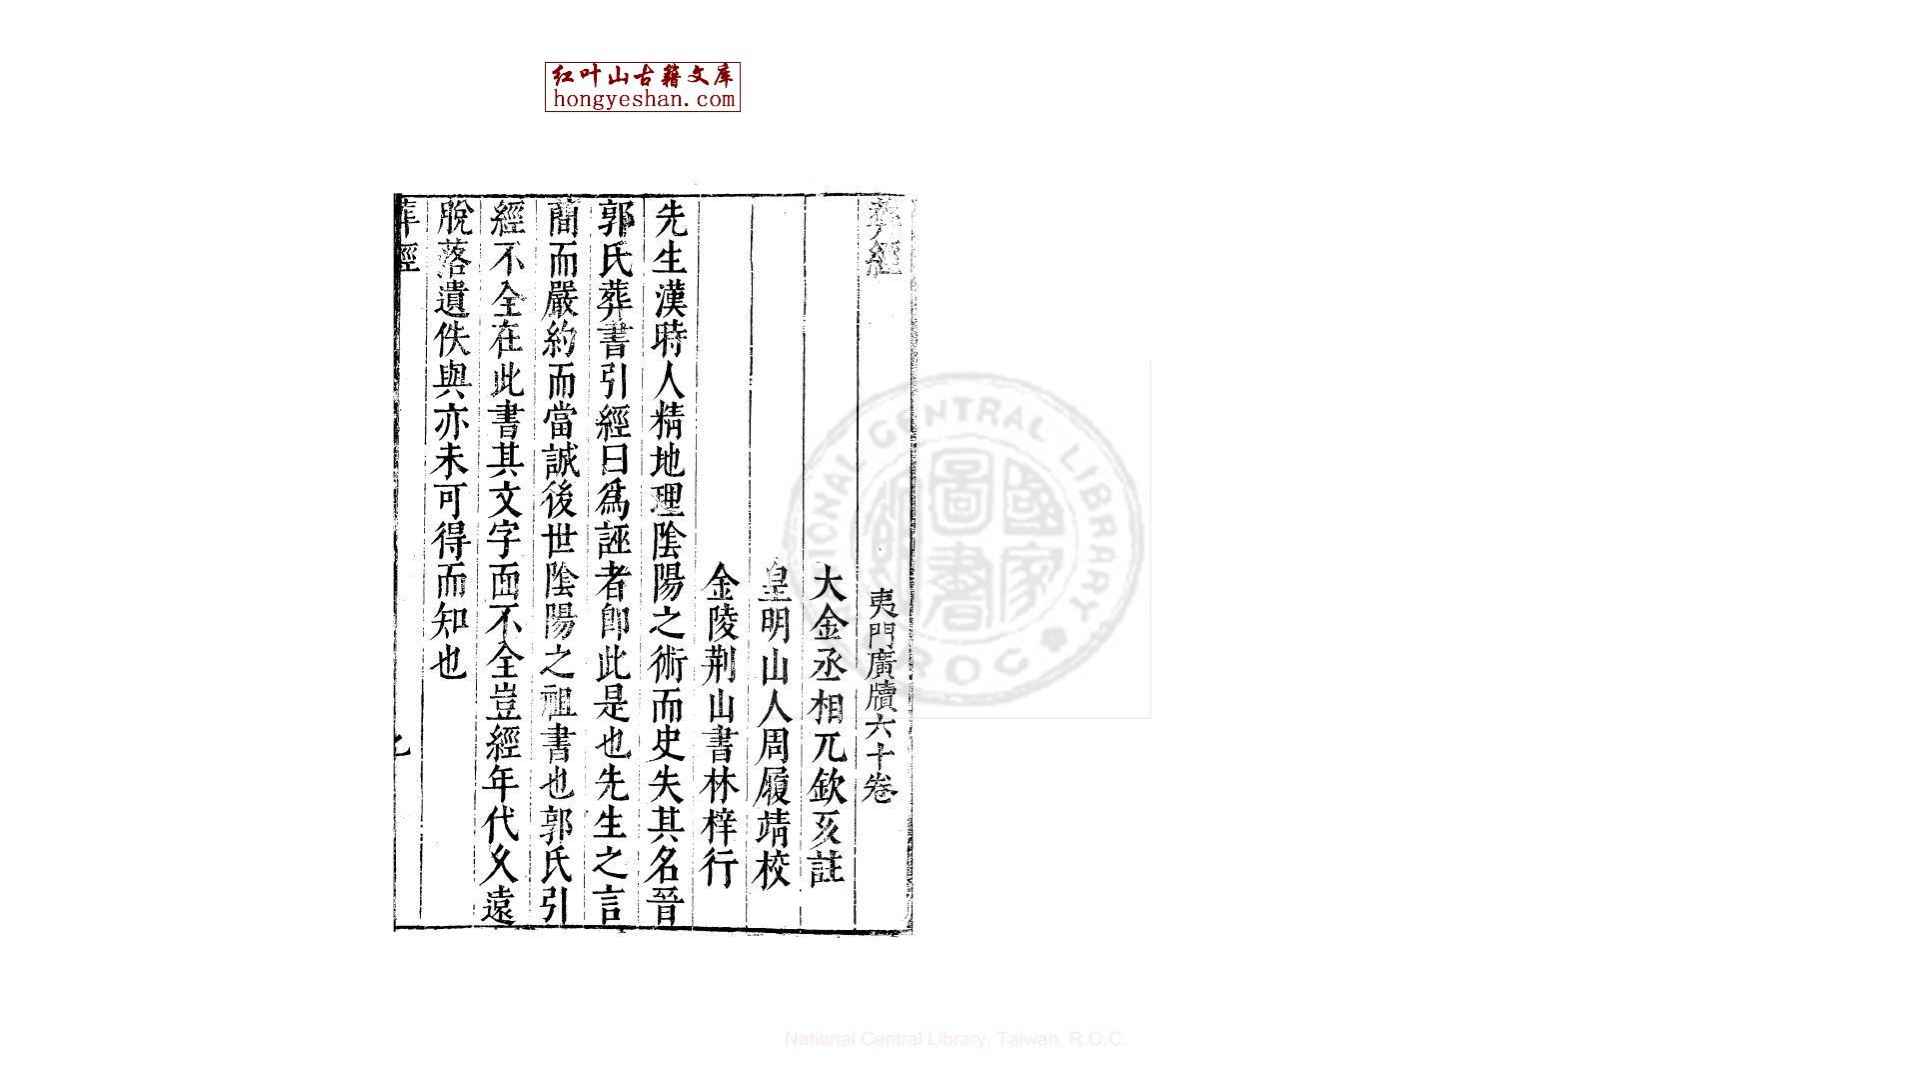 红叶山古籍文库
hongyeshan.com
葬經
夷門廣牘六十卷
大金丞相兀欽亥註
皇明山人周履靖校
金陵荆山書林梓行
先生漢時人精地理陰陽之術而史失其名晉
郭氏葬書引經曰爲誣者卽此是也先生之言
蕳而嚴約而當誠後世陰陽之祖書也郭氏引
經不全在此書其文字面不全豈經年代乆遠
脫落遺佚與亦未可得而知也
葬經
國家圖書館
NATIONAL CENTRAL LIBRARY
ROC
National Central Library, Taiwan, R.O.C.